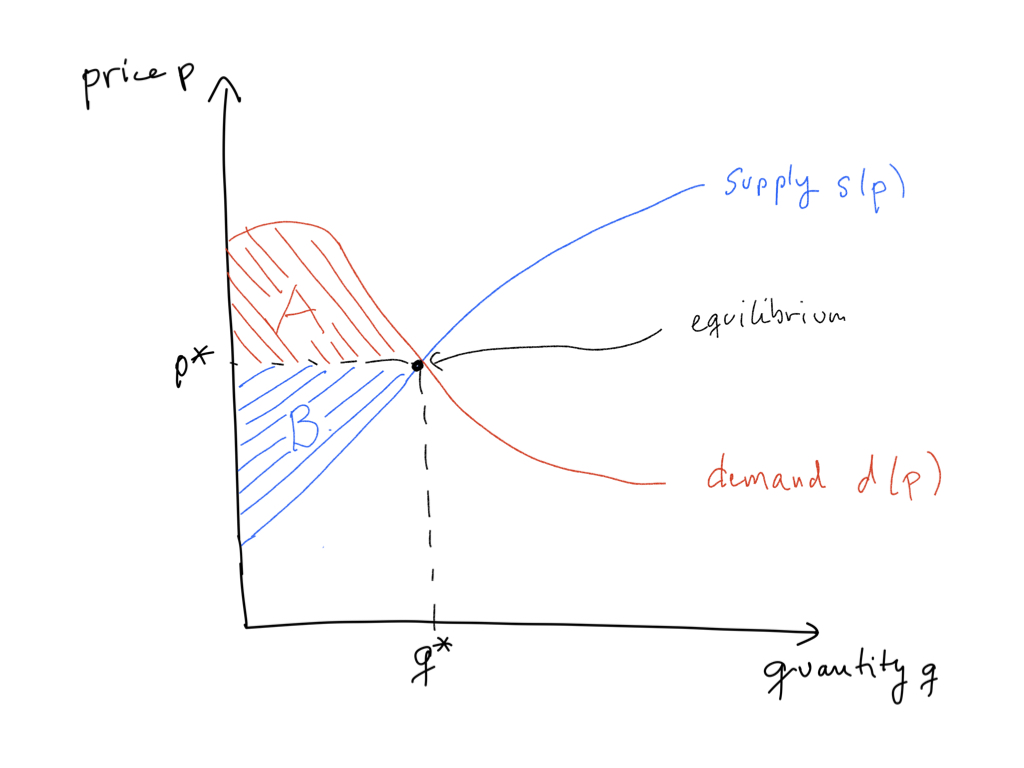 price p
supply s(p)
A
equilibrium
p*
B
demand d(p)
q*
quantity q